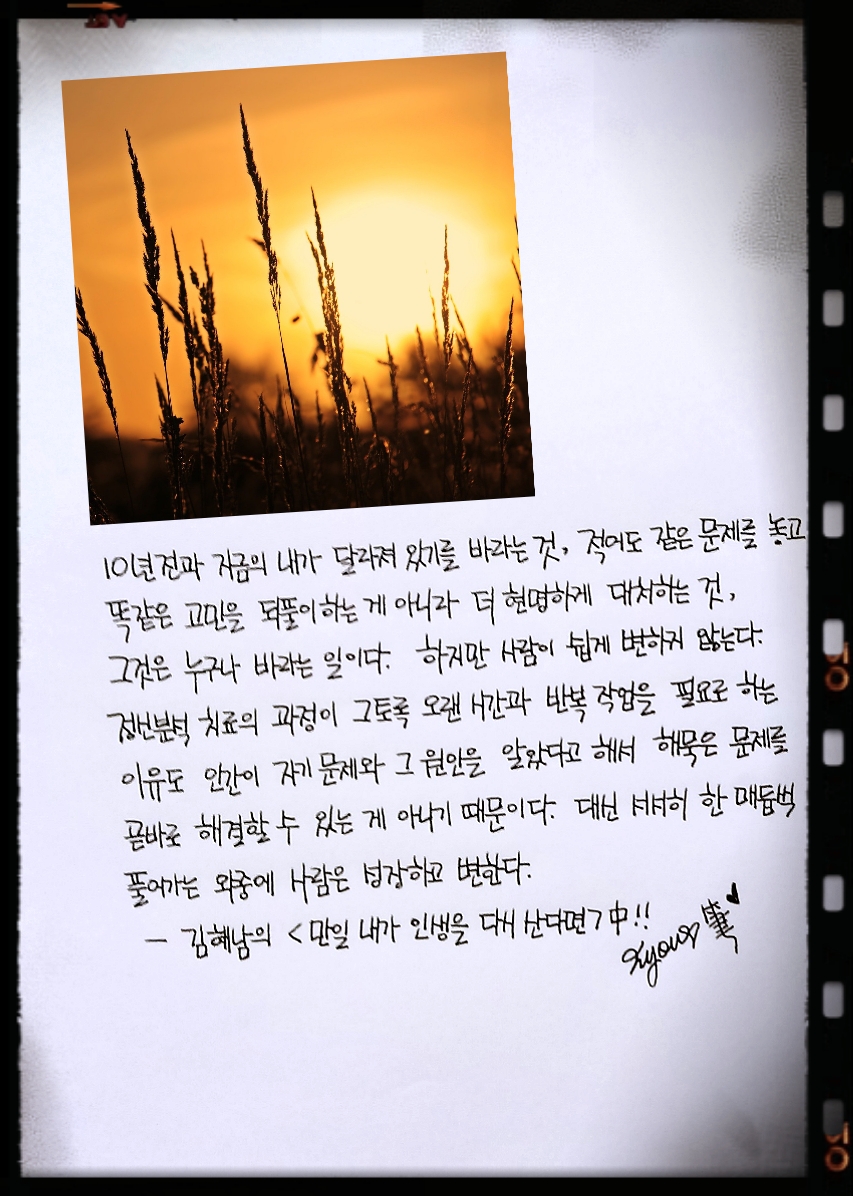 10년전과 지금의 내가 달라져 있기를 바라는 것, 적어도 같은 문제를 놓고
똑같은 고민을 되풀이하는 게 아니라 더 현명하게 대처하는 것,
그것은 누구나 바라는 일이다. 하지만 사람이 쉽게 변하지 않는다.
정신분석 치료의 과정이 그토록 오랜 시간과 반복 작업을 필요로 하는
이유도 인간이 자기 문제와 그 원인을 알았다고 해서 해묵은 문제를
곧바로 해결할 수 있는 게 아니기 때문이다. 대신 서서히 한 매듭씩
풀어가는 와중에 사람은 성장하고 변한다.
- 김혜남의 <만일 내가 인생을 다시 산다면> 中!!